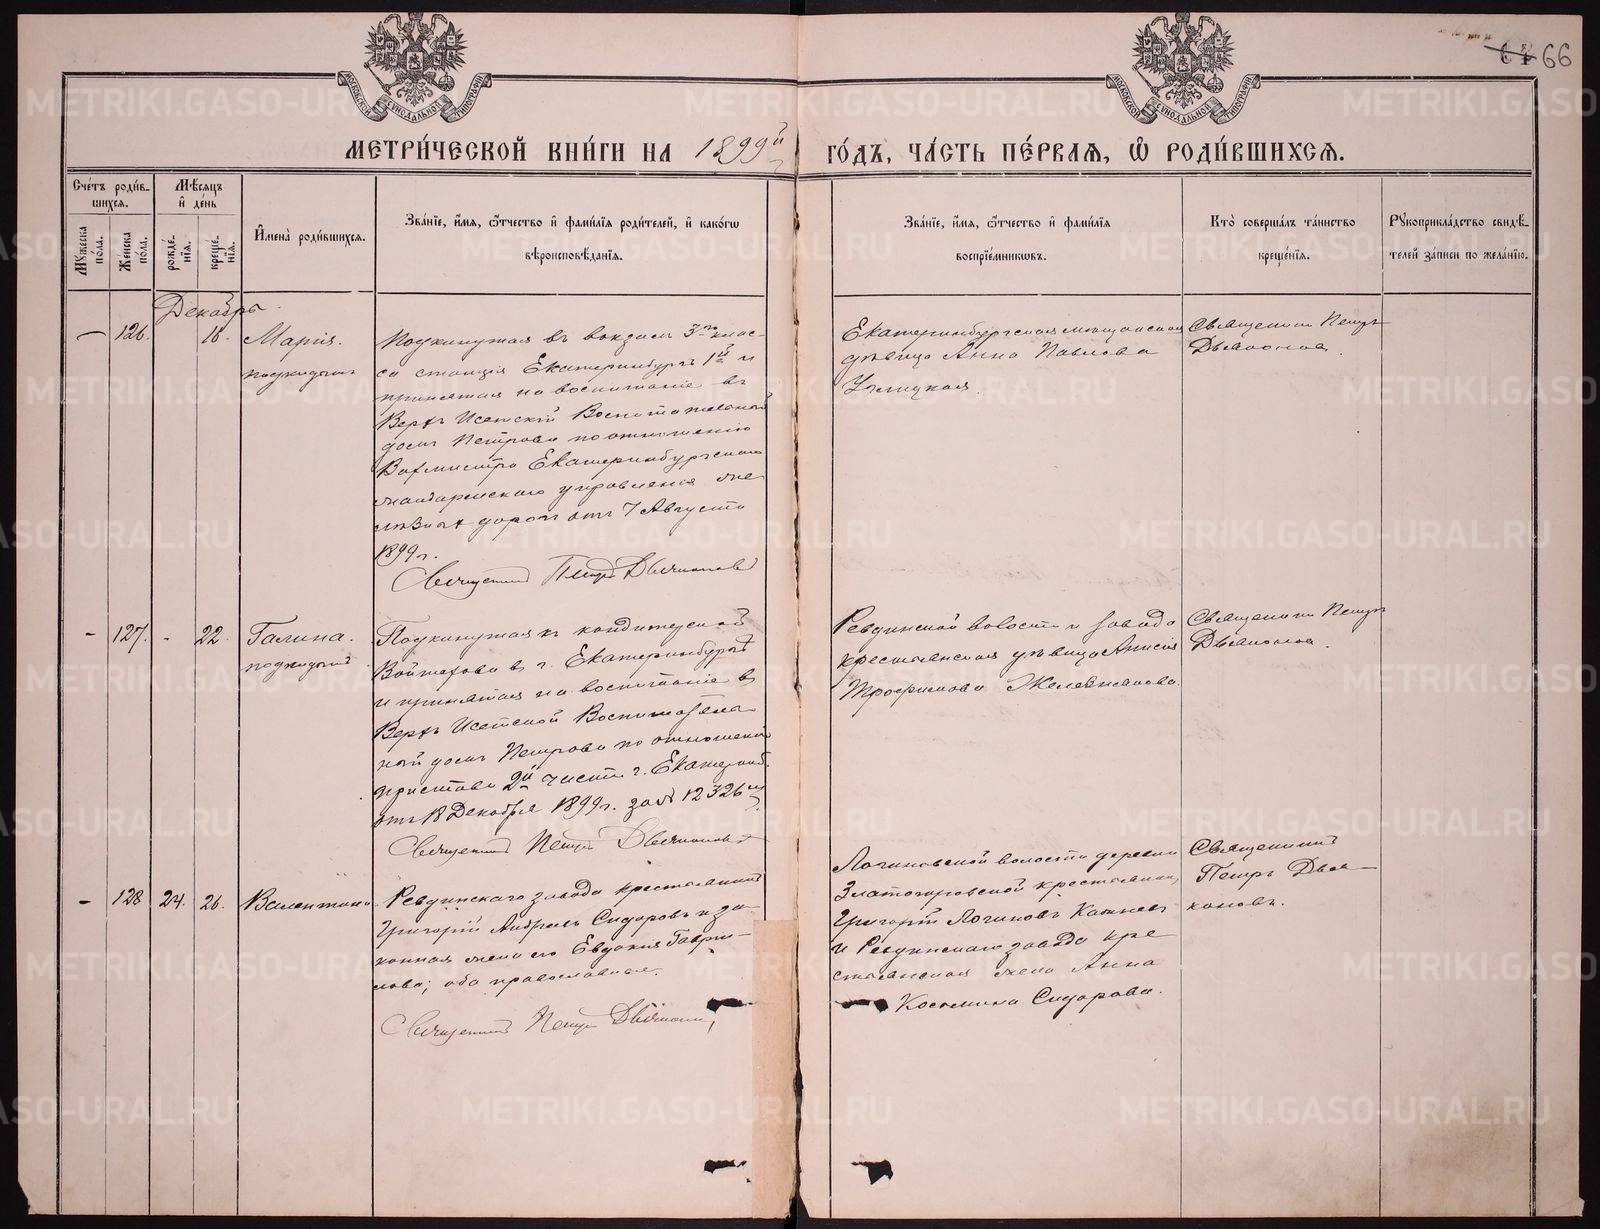 66
МЕТРИ́ЧЕСКОЙ КНИ́ГИ НА 1899й ГО́ДЪ, ЧА́СТЬ ПЕ́РВАЯ, Ѡ РОДИ́ВШИХСЯ.
Сче́тъ роди́в-
шихся.
Мꙋжеска по́ла.
Женска по́ла.
Мѣ́сяцъ
и҆ де́нь
рожде́-
нїя.
креще́-
нїя.
И҆мена̀ роди́вшихся.
Зва́нїе, и҆́мя, ѻ҆́тчество и҆ фами́лїя роди́телей, и҆ како́гѡ
вѣроисповѣ́данїя.
Зва́нїе, и҆́мя, ѻ҆́тчество и҆ фами́лїя
воспрїе́мникѡвъ.
Кто̀ соверша́лъ та́инство
креще́нїя.
Рꙋкоприкла́дство свидѣ́-
телей за́писи по жела́нїю.
Декабрь.
— 126. 16. Марія.
подкидышъ
Подкинутая въ вокзалъ 3го клас-
са станціи Екатеринбургъ 1й и
принятая на воспитаніе въ
Верхъ Исетскій Воспитательный
домъ Петрова по отношенію
Вахмистра Екатеринбургскаго
жандармскаго управленія же
лѣзныхъ дорогъ отъ 7 Августа
1899 г.
Священникъ Петръ Дьяконовъ
Екатеринбургская мѣщанская
дѣвица Анна Павлова
Священникъ Петръ
Дьяконовъ.
- 127. - 22. Галина.
подкидышъ
Подкинутая къ кондитерской
Войтехова въ г. Екатеринбургѣ
и принятая на воспитаніе въ
Верхъ Исетской Воспитатель-
ный домъ Петрова по отношенію
пристава 2й части г. Екатеринб.
отъ 18 Декабря 1899 г. за № 12326мъ
Священникъ Петръ Дьяконовъ
Ревдинской волости и завода
крестьянская дѣвица Анисія
Трофимова
Священникъ Петръ
Дьяконовъ.
- 128 24. 26. Валентина
Ревдинскаго завода крестьянинъ
Григорій Андреевъ Сидоровъ и за-
конная жена его Евдокія Гаври-
лова; оба православные.
Священникъ Петръ Дьяконовъ
Логиновской волости деревни
Златогоровской крестьянинъ
Григорій Логиновъ
и Ревдинскаго завода кре
стьянская жена Анна
Космина Сидорова.
Священникъ
Петръ Дья-
коновъ.
METRIKI.GASO-URAL.RU